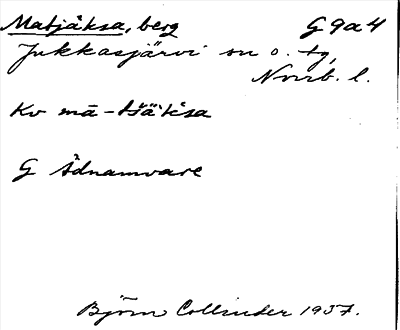 Matjåksa, berg G 9a4
Jukkasjärvi sn o. tg,
Norrb. l.
Kv mā-
G Ådnamvare
Björn Collinder 1937.